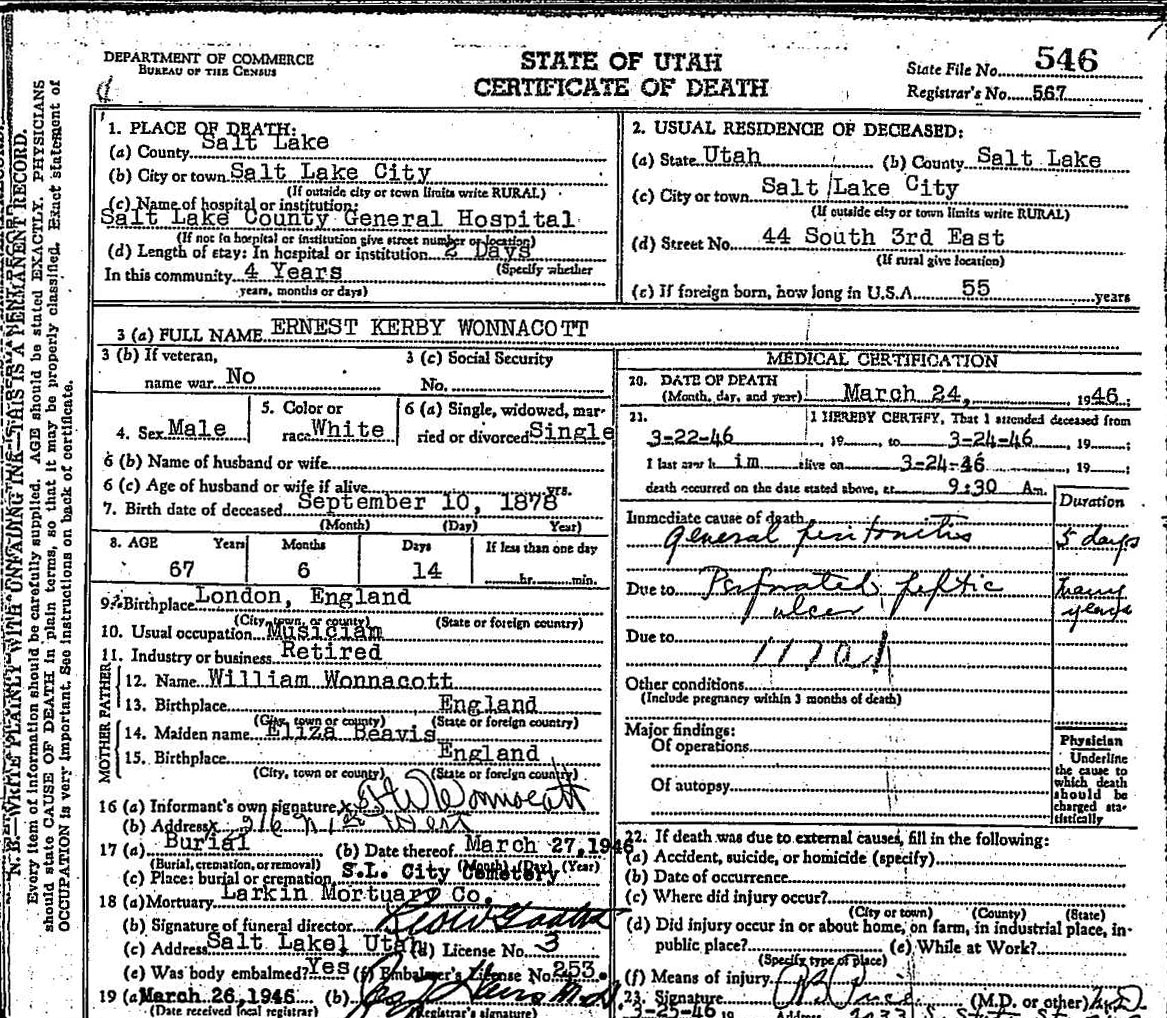 DEPARTMENT OF COMMERCE
BUREAU OF THE CENSUS
STATE OF UTAH
CERTIFICATE OF DEATH
State File No. 546
Registrar's No. 567
N. B.—WRITE PLAINLY WITH UNFADING INK—THIS IS A PERMANENT RECORD.
Every item of information should be carefully supplied. AGE should be stated EXACTLY. PHYSICIANS
should state CAUSE OF DEATH in plain terms, so that it may be properly classified. Exact statement of
OCCUPATION is very important. See instructions on back of certificate.
1. PLACE OF DEATH:
(a) County Salt Lake
(b) City or town Salt Lake City
(If outside city or town limits write RURAL)
(c) Name of hospital or institution:
Salt Lake County General Hospital
(If not in hospital or institution give street number or location)
(d) Length of stay: In hospital or institution 2 Days
(Specify whether
In this community 4 Years
years, months or days)
2. USUAL RESIDENCE OF DECEASED:
(a) State Utah (b) County Salt Lake
(c) City or town Salt Lake City
(If outside city or town limits write RURAL)
(d) Street No. 44 South 3rd East
(If rural give location)
(e) If foreign born, how long in U.S.A. 55 years
3 (a) FULL NAME ERNEST KERBY WONNACOTT
3 (b) If veteran,
name war No
3 (c) Social Security
No.
4. Sex Male
5. Color or
race White
6 (a) Single, widowed, mar-
ried or divorced Single
6 (b) Name of husband or wife
6 (c) Age of husband or wife if alive yrs.
7. Birth date of deceased September 10, 1878
(Month) (Day) Year)
8. AGE Years Months Days If less than one day
67 6 14 hr. min.
9. Birthplace London, England
(City, town, or county) (State or foreign country)
10. Usual occupation Musician
11. Industry or business Retired
FATHER
12. Name William Wonnacott
13. Birthplace England
(City, town or county) (State or foreign country)
MOTHER
14. Maiden name Eliza Beavis
15. Birthplace England
(City, town or county) (State or foreign country)
16 (a) Informant's own signature x Wonnacott
(b) Address x 276 N 1st West
17 (a) Burial (b) Date thereof March 27, 1946
(Burial, cremation, or removal) (Month) (Day) (Year)
(c) Place: burial or cremation S.L. City Cemetery
18 (a) Mortuary Larkin Mortuary Co.
(b) Signature of funeral director
(c) Address Salt Lake, Utah (d) License No. 3
(e) Was body embalmed? Yes (f) Embalmer's License No. 253.
19 (a) March 26, 1946 (b) M.D.
(Date received local registrar) Registrar's signature)
MEDICAL CERTIFICATION
20. DATE OF DEATH
(Month, day, and year) March 24, 1946;
21. I HEREBY CERTIFY, That I attended deceased from
3-22-46, 19 to 3-24-46, 19 ;
I last saw h im alive on 3-24-46, 19 ;
death occurred on the date stated above, at 9:30 Am.
Duration
Immediate cause of death
general peritonitis 5 days
Due to Perforated peptic many
ulcer years
Due to 117a1
Other conditions
(Include pregnancy within 3 months of death)
Major findings:
Of operations
Of autopsy
Physician
Underline
the cause to
which death
should be
charged sta-
tistically
22. If death was due to external causes, fill in the following:
(a) Accident, suicide, or homicide (specify)
(b) Date of occurrence
(c) Where did injury occur?
(City or town) (County) (State)
(d) Did injury occur in or about home, on farm, in industrial place, in-
public place? (e) While at Work?
(Specify type of place)
(f) Means of injury
23. Signature (M.D. or other) M.D.
3-25-46 19 Address